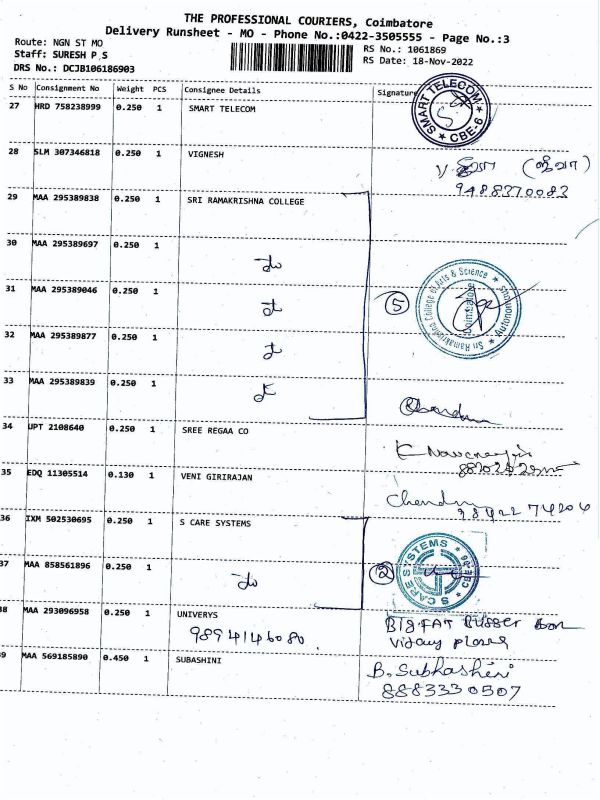 THE PROFESSIONAL COURIERS, Coimbatore
Delivery Runsheet - MO - Phone No.:0422-3505555 - Page No.:3
Route: NGN ST MO
RS No.: 1061869
Staff: SURESH P S
RS Date: 18-Nov-2022
DRS No.: DCJB106186903
S No Consignment No Weight PCS Consignee Details Signature
27 HRD 758238999 0.250 1 SMART TELECOM
SMART TELECOM CBE-6
28 SLM 307346818 0.250 1 VIGNESH
9488370083
29 MAA 295389838 0.250 1 SRI RAMAKRISHNA COLLEGE
30 MAA 295389697 0.250 1 do
31 MAA 295389046 0.250 1
5
Sri Ramakrishna College of Arts & Science Autonomous Coimbatore
32 MAA 295389877 0.250 1
33 MAA 295389839 0.250 1
34 UPT 2108640 0.250 1 SREE REGAA CO
35 EDQ 11305514 0.130 1 VENI GIRIRAJAN
36 IXM 502530695 0.250 1 S CARE SYSTEMS
37 MAA 858561896 0.250 1 do
2
SYSTEMS
38 MAA 293096958 0.250 1 UNIVERYS
9894146080
BIGFAT
39 MAA 569185890 0.450 1 SUBASHINI
B. Subhashini
8883330507